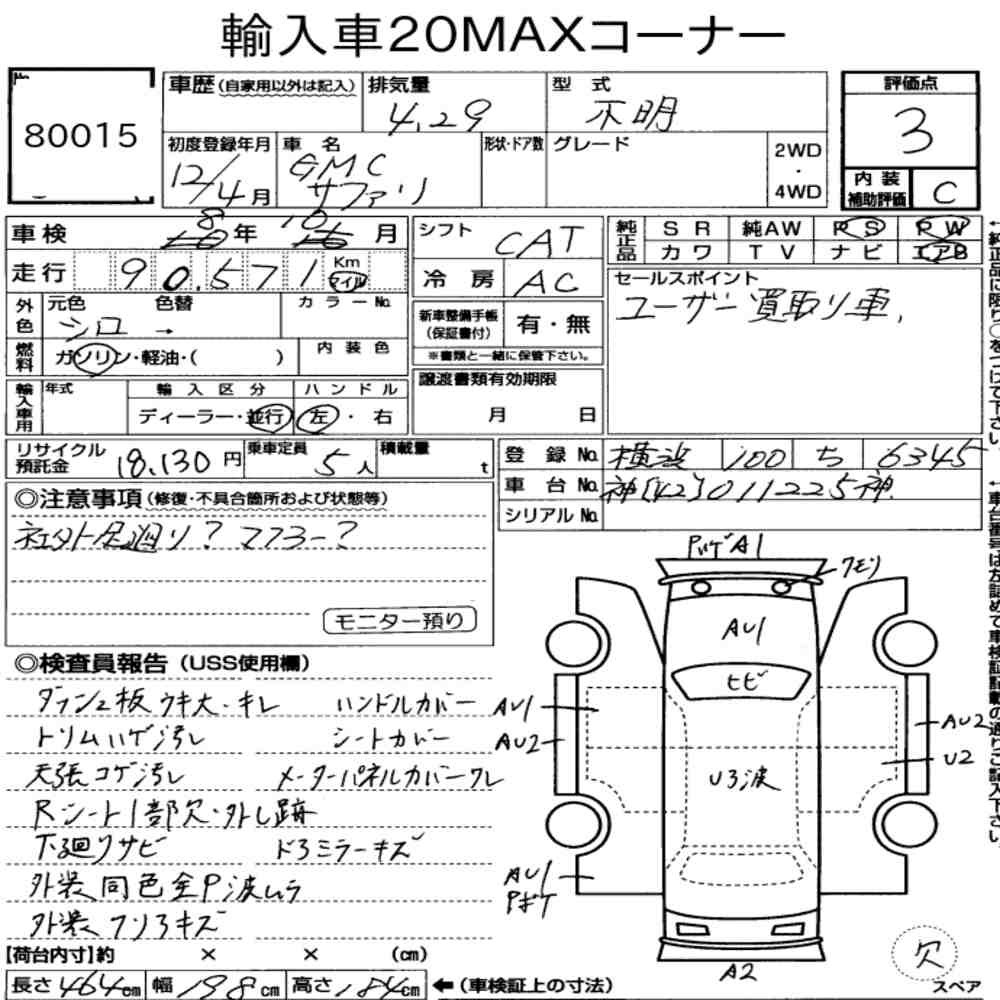 輸入車20MAXコーナー
80015
車歴(自家用以外は記入) 排気量 4.29 型式 不明
評価点 3
初度登録年月 12/4月 車名 GMC サファリ 形状・ドア数 グレード 2WD・4WD
内装補助評価 C
車検 8年 10月
シフト CAT
純正品 SR 純AW PS PW
カワ TV ナビ エアB
走行 90,571 Km マイル
冷房 AC
セールスポイント
ユーザー買取り車,
外色 元色 色替 カラーNo.
シロ →
新車整備手帳(保証書付) 有・無
※書類と一緒に保管下さい。
燃料 ガソリン・軽油・( ) 内装色
譲渡書類有効期限
月 日
輸入車用 年式 輸入区分 ハンドル
ディーラー・並行 左・右
リサイクル預託金 18,130円 乗車定員 5人 積載量 t
登録No. 横浜 100 ち 6345
車台No. 神[42]011225神
シリアルNo.
◎注意事項(修復・不具合箇所および状態等)
社外足廻り? マフラー?
モニター預り
◎検査員報告(USS使用欄)
ダッシュ板ウキ大・キレ ハンドルカバー
トリムハゲ汚レ シートカバー
天張コゲ汚レ メーターパネルカバーワレ
Rシート1部欠・外し跡
下廻りサビ ドミラーキズ
外装同色全P波ムラ
外装フリキズ
PハゲA1
クモリ
AU1
ヒビ
AU1
AU2
AU2
U2
U3波
AU1
Pハゲ
A2
欠
スペア
【荷台内寸】約 × × (cm)
長さ464cm 幅198cm 高さ184cm ←(車検証上の寸法)
←純正品に限り○をつけて下さい
←車台番号は左詰めで車検証記載の通りご記入下さい。